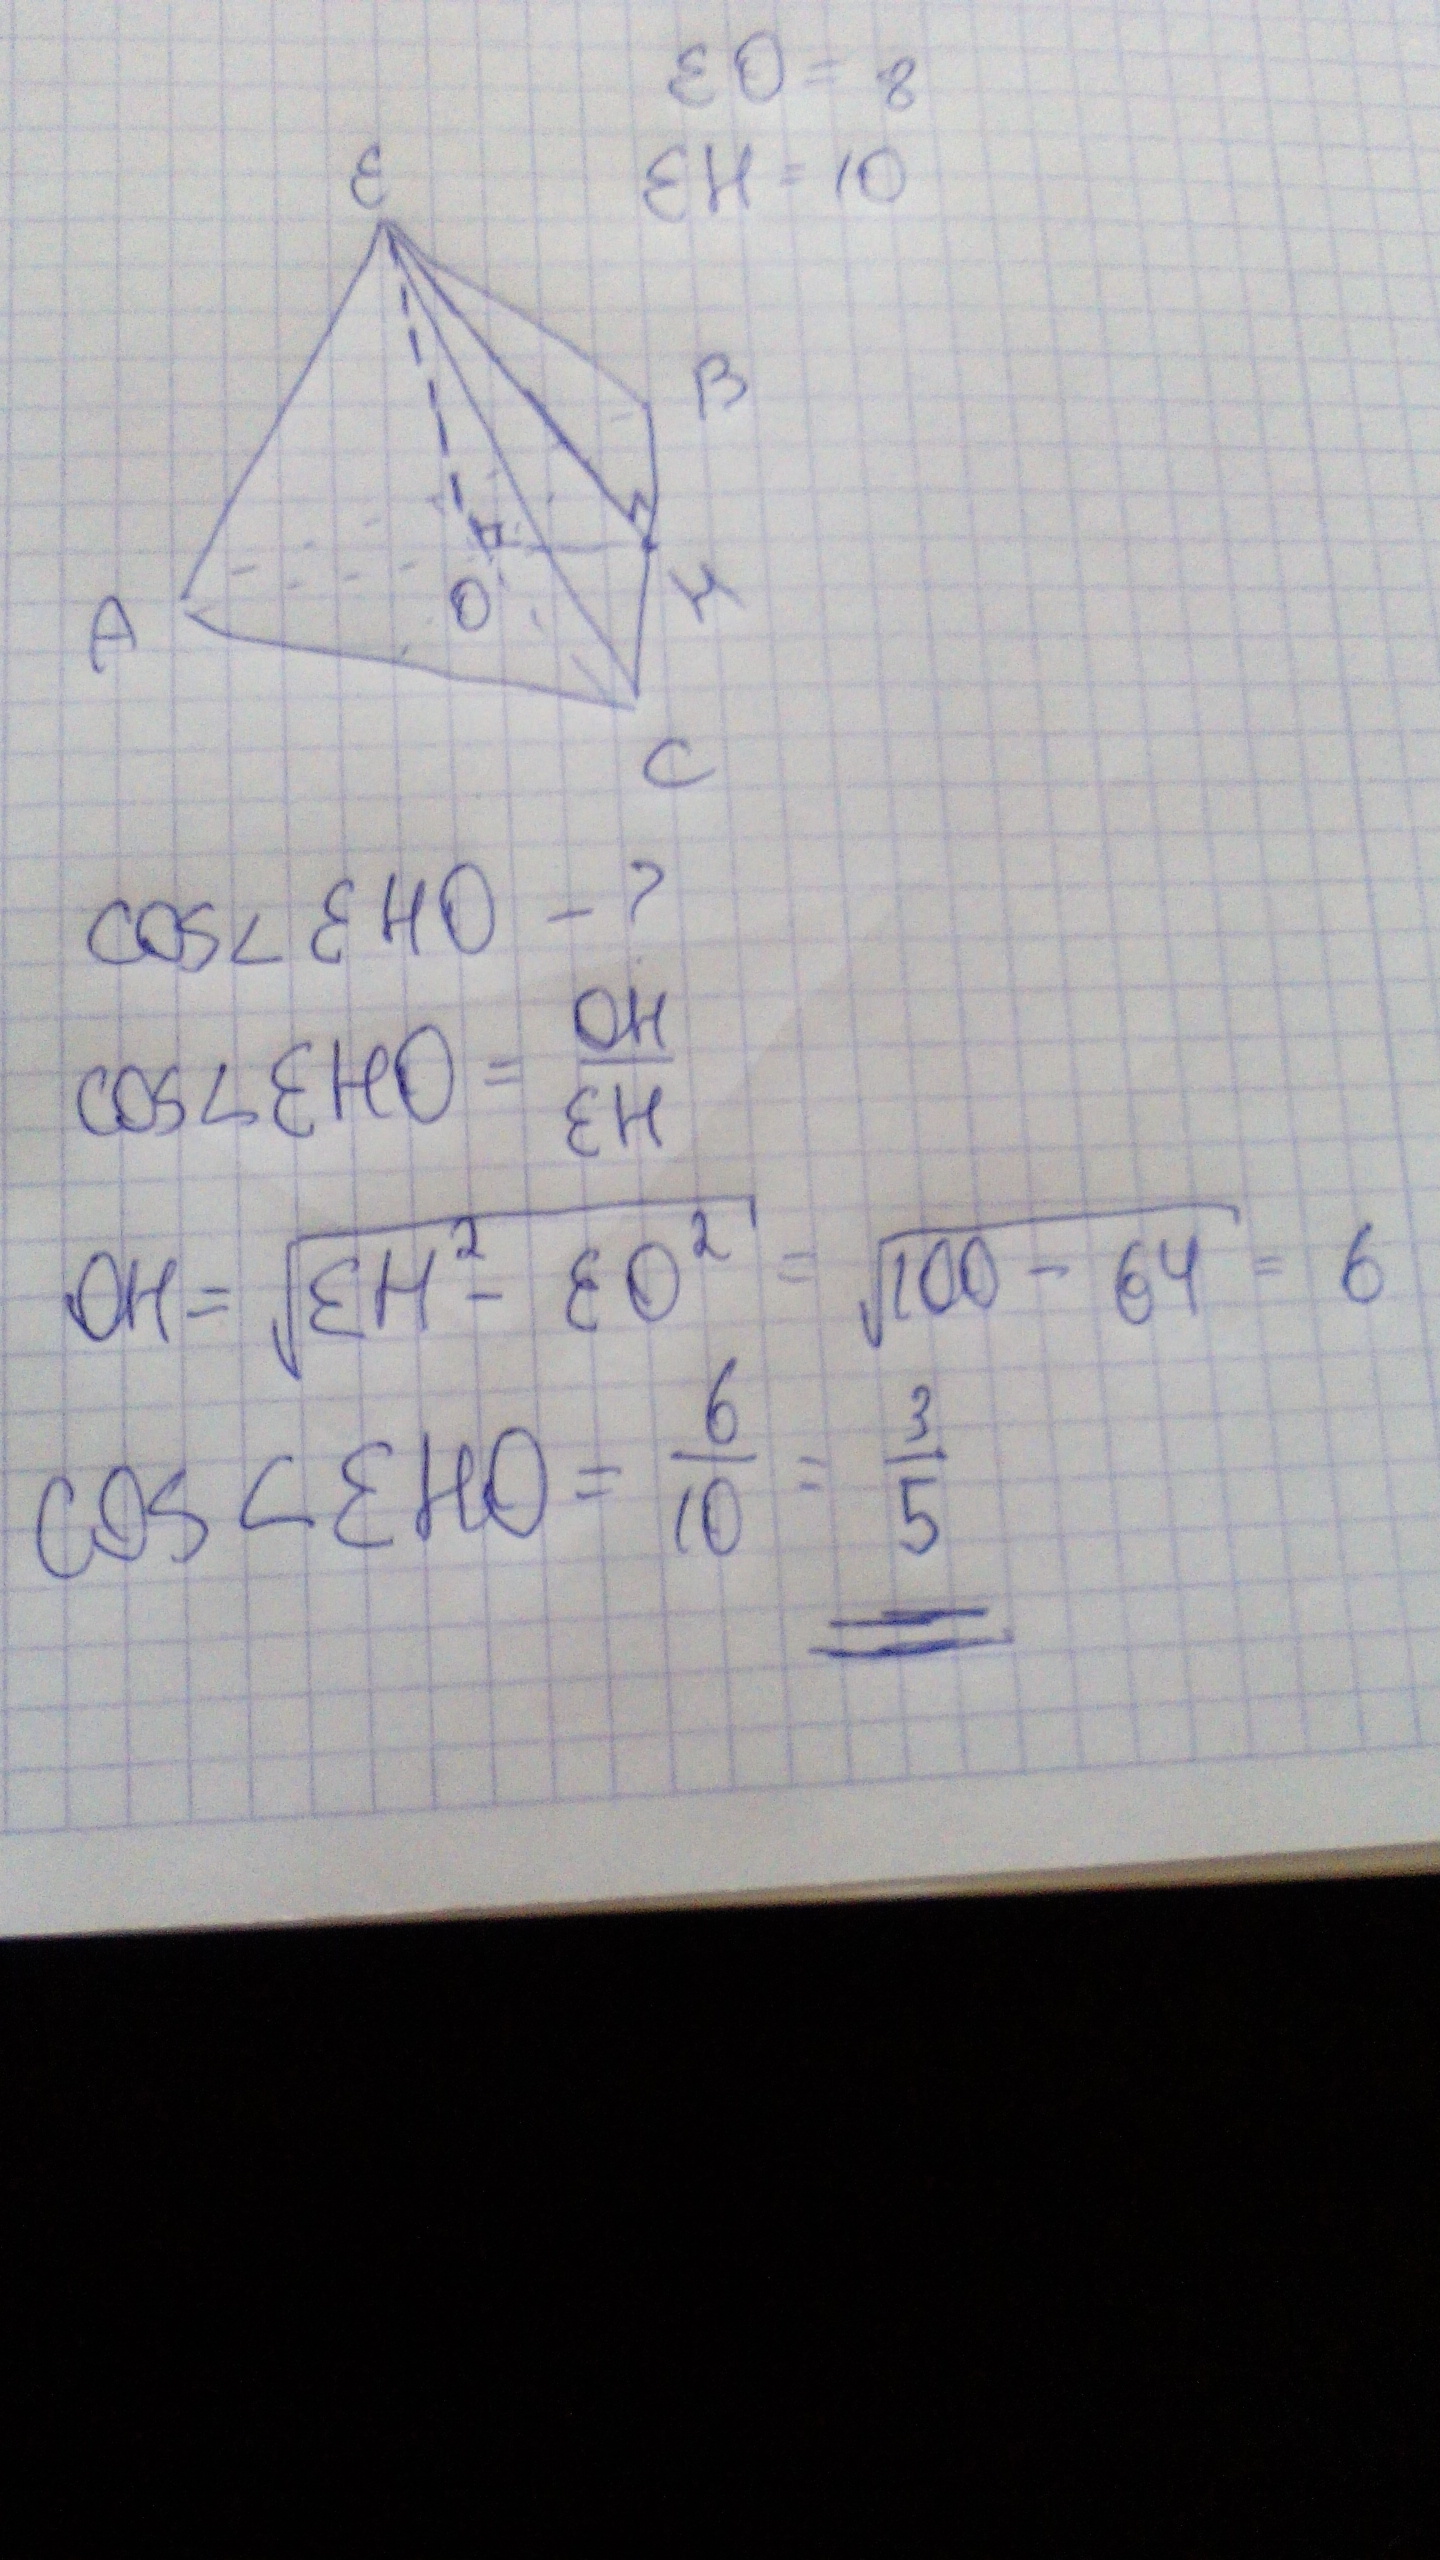 EO = 8
EH = 10
E
B
A
O
H
C
cos∠EHO - ?
cos∠EHO = OH/EH
OH = √(EH² - EO²) = √(100 - 64) = 6
cos∠EHO = 6/10 = 3/5